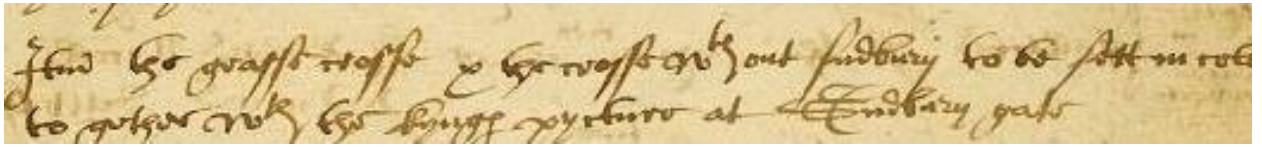 Itm the grasse crosse & the crosse wth out sudbury to be sett in col
to gether wth the kyngs pycture at Sudbury gate